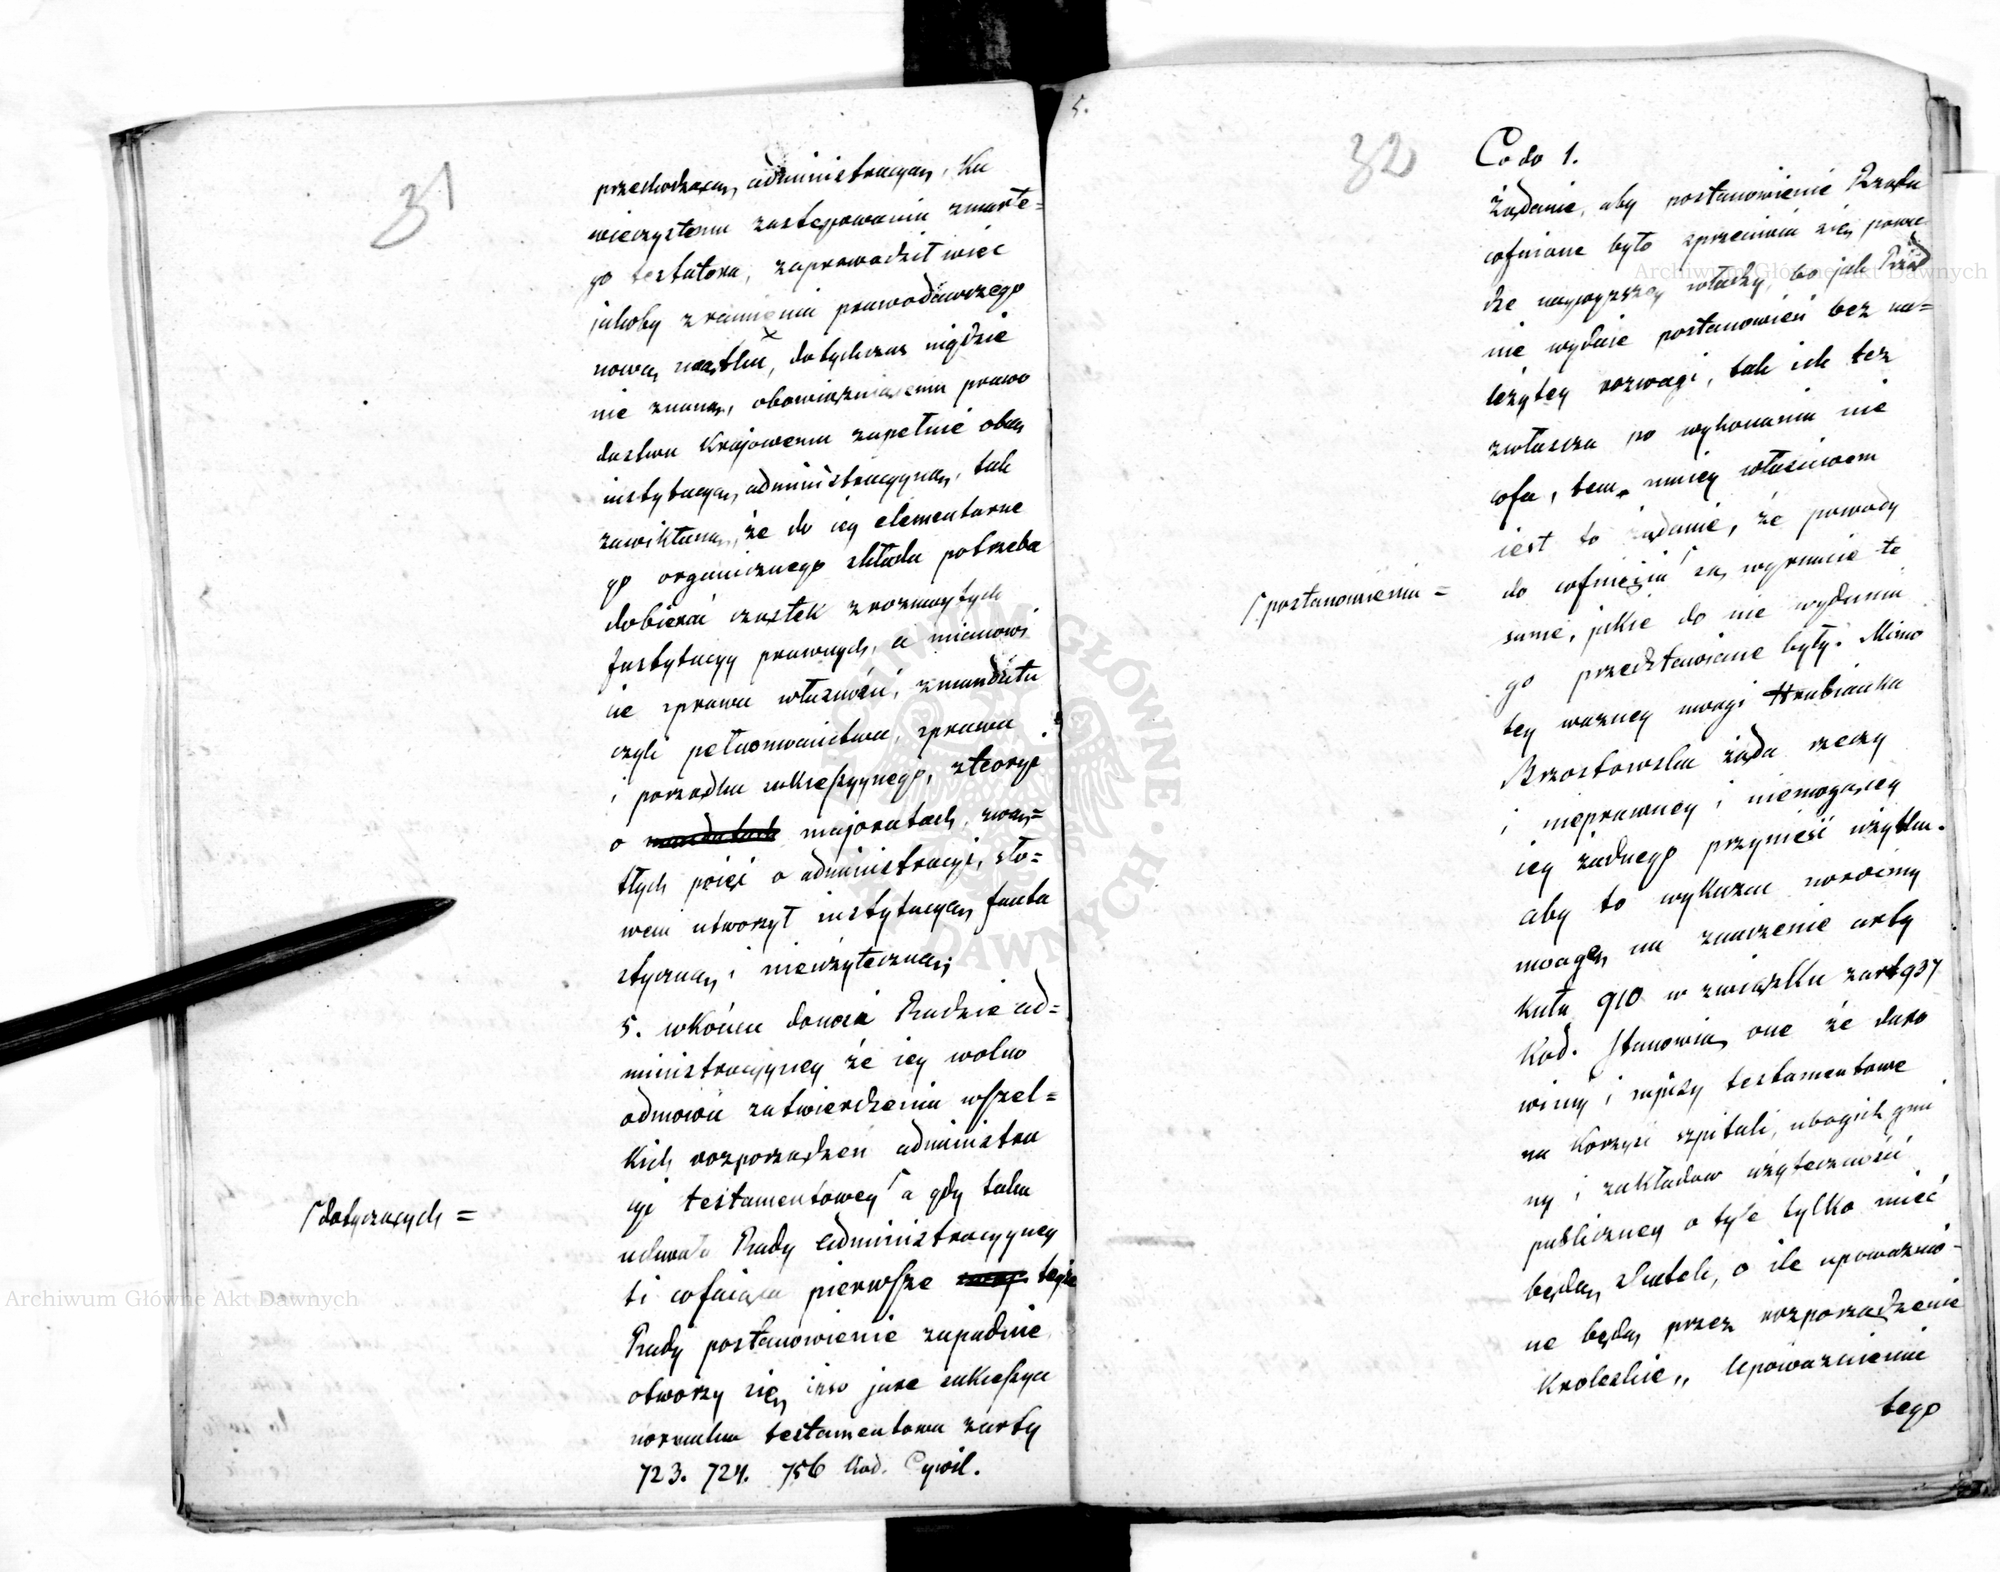 31
przechodzącą administracyą, Ku
wieczystemu zastępowaniu zmarłe=
go testatora, zaprowadził więc
jakoby z ramienia prawodawczego
nową, dotychczas nigdzie
nie znaną, obowiązującemu prawo
dastwu Krajowemu zupełnie obcą
instytucyą, administracyyną, tak
zawikłaną, że do iey elementarne
go organicznego składu potrzeba
dobierać cząstek z rozmaytych
Instytucyy prawnych, a mianowi
cie z prawa własności, z mandatu
czyli pełnomocnictwa, z prawa
i porządku sukcessyynego, z teoryi
o majoratach, zwą=
tłych poięć o administracyi, sło=
wem utworzył instytucyą fanta
styczną, i nieużyteczną;
5. wkońcu donosi Radzie ad=
ministracyyney że iey wolno
odmówić zatwierdzenia wszel=
kich rozporządzeń administra
cyi testamentowey ſ a gdy taka
uchwała Rady Administracyyney
ti cofaiąca pierwsze teyże
Rady postanowienie zapadnie
otworzy się, ipso jure sukcessya
normalna testamentowa z arty
723. 724. 756 Kod. Cywil.
ſ dotyczących =
5.
32
Co do 1.
Żądanie, aby postanowienie Rządu
cofnione było sprzeciwia się powa
dze naywyższey władzy, bo jak Rząd
nie wydaie postanowień bez na=
leżytey rozwagi, tak ich też
zwłaszcza po wykonaniu nie
cofa, tem mniey właściwem
iest to żądanie, że powody
do cofnięcia ſ są wyraźnie te
same, jakie do nie wydania
go przedstawiane były. Mimo
tey ważney uwagi Hrabianka
Brzostowska żąda rzeczy
i nieprawney i niemogącey
iey żadnego przynieść użytku.
aby to wykazać zwróćmy
uwagę, na znaczenie arty
kułu 910 w związku z art 937
Kod. Stanowią one że daro
wizny i zapisy testamentowe
na korzyść szpitali, ubogich gmi
ny i zakładów użyteczności
publiczney o tyle tylko mieć
będą, skutek, o ile upoważnio=
ne będą, przez rozporządzenie
Królewskie „ Upoważnienie
tego
ſ postanowienia =
Archiwum Główne Akt Dawnych
Archiwum Główne Akt Dawnych
ARCHIWUM GŁÓWNE AKT DAWNYCH